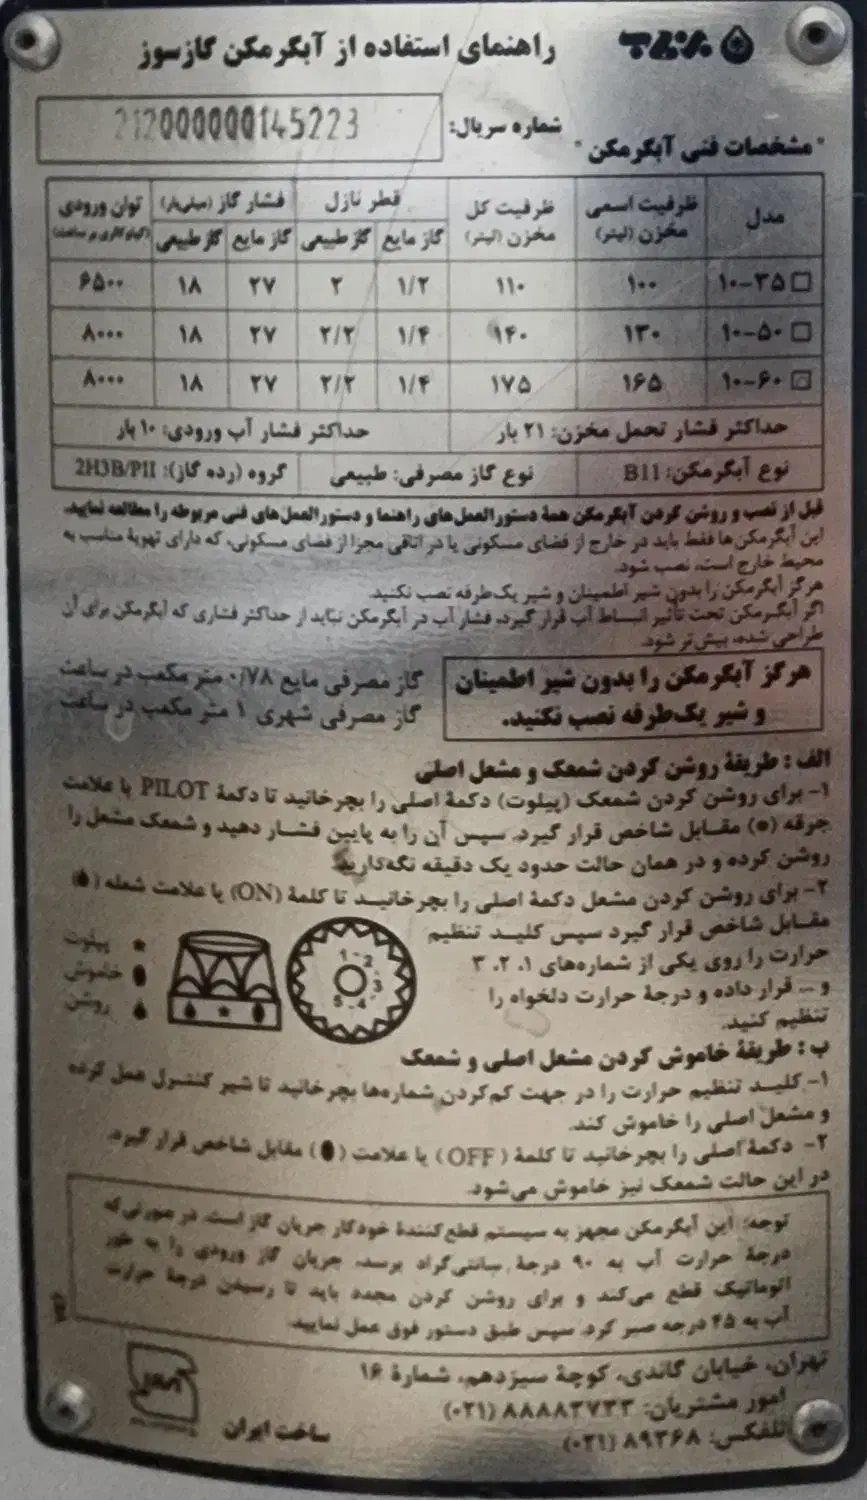 راهنمای استفاده از آبگرمکن گازسوز
شماره سریال: 212000000145223
"مشخصات فنی آبگرمکن"
مدل | ظرفیت اسمی مخزن (لیتر) | ظرفیت کل مخزن (لیتر) | قطر نازل | فشار گاز (میلی‌بار) | توان ورودی (کیلوکالری بر ساعت)
گاز مایع | گاز طبیعی | گاز مایع | گاز طبیعی
۱۰-۳۵ | ۱۰۰ | ۱۱۰ | ۱/۲ | ۲ | ۲۷ | ۱۸ | ۶۵۰۰
۱۰-۵۰ | ۱۳۰ | ۱۴۰ | ۱/۴ | ۲/۲ | ۲۷ | ۱۸ | ۸۰۰۰
۱۰-۶۰ | ۱۶۵ | ۱۷۵ | ۱/۴ | ۲/۲ | ۲۷ | ۱۸ | ۸۰۰۰
حداکثر فشار تحمل مخزن: ۲۱ بار | حداکثر فشار آب ورودی: ۱۰ بار
نوع آبگرمکن: B11 | نوع گاز مصرفی: طبیعی | گروه (رده گاز): 2H3B/PII
قبل از نصب و روشن کردن آبگرمکن همهٔ دستورالعمل‌های راهنما و دستورالعمل‌های فنی مربوطه را مطالعه نمایید.
این آبگرمکن‌ها فقط باید در خارج از فضای مسکونی یا در اتاقی مجزا از فضای مسکونی، که دارای تهویهٔ مناسب به
محیط خارج است، نصب شود.
هرگز آبگرمکن را بدون شیر اطمینان و شیر یک‌طرفه نصب نکنید.
اگر آبگرمکن تحت تأثیر انبساط آب قرار گیرد، فشار آب در آبگرمکن نباید از حداکثر فشاری که آبگرمکن برای آن
طراحی شده، بیش‌تر شود.
هرگز آبگرمکن را بدون شیر اطمینان
و شیر یک‌طرفه نصب نکنید.
گاز مصرفی مایع ۰/۷۸ متر مکعب در ساعت
گاز مصرفی شهری ۱ متر مکعب در ساعت
الف: طریقهٔ روشن کردن شمعک و مشعل اصلی
۱- برای روشن کردن شمعک (پیلوت) دکمهٔ اصلی را بچرخانید تا دکمهٔ PILOT یا علامت
جرقه (*) مقابل شاخص قرار گیرد. سپس آن را به پایین فشار دهید و شمعک مشعل را
روشن کرده و در همان حالت حدود یک دقیقه نگه‌دارید.
۲- برای روشن کردن مشعل دکمهٔ اصلی را بچرخانید تا کلمهٔ (ON) یا علامت شعله (🔥)
مقابل شاخص قرار گیرد سپس کلید تنظیم
حرارت را روی یکی از شماره‌های ۱، ۲، ۳
و ... قرار داده و درجهٔ حرارت دلخواه را
تنظیم کنید.
1 - 2 - 3 - 4 - 5
* پیلوت
خاموش
روشن
ب: طریقهٔ خاموش کردن مشعل اصلی و شمعک
۱- کلید تنظیم حرارت را در جهت کم‌کردن شماره‌ها بچرخانید تا شیر کنترل عمل کرده
و مشعل اصلی را خاموش کند.
۲- دکمهٔ اصلی را بچرخانید تا کلمهٔ (OFF) یا علامت (●) مقابل شاخص قرار گیرد.
در این حالت شمعک نیز خاموش می‌شود.
توجه: این آبگرمکن مجهز به سیستم قطع‌کنندهٔ خودکار جریان گاز است. در صورتی‌که
درجهٔ حرارت آب به ۹۰ درجهٔ سانتی‌گراد برسد، جریان گاز ورودی را به طور
اتوماتیک قطع می‌کند و برای روشن کردن مجدد باید تا رسیدن درجهٔ حرارت
آب به ۴۵ درجه صبر کرد. سپس طبق دستور فوق عمل نمایید.
تهران، خیابان گاندی، کوچهٔ سیزدهم، شمارهٔ ۱۶
امور مشتریان: ۸۸۸۸۳۷۳۳ (۰۲۱)
تلفکس: ۸۹۳۶۸ (۰۲۱)
ساخت ایران